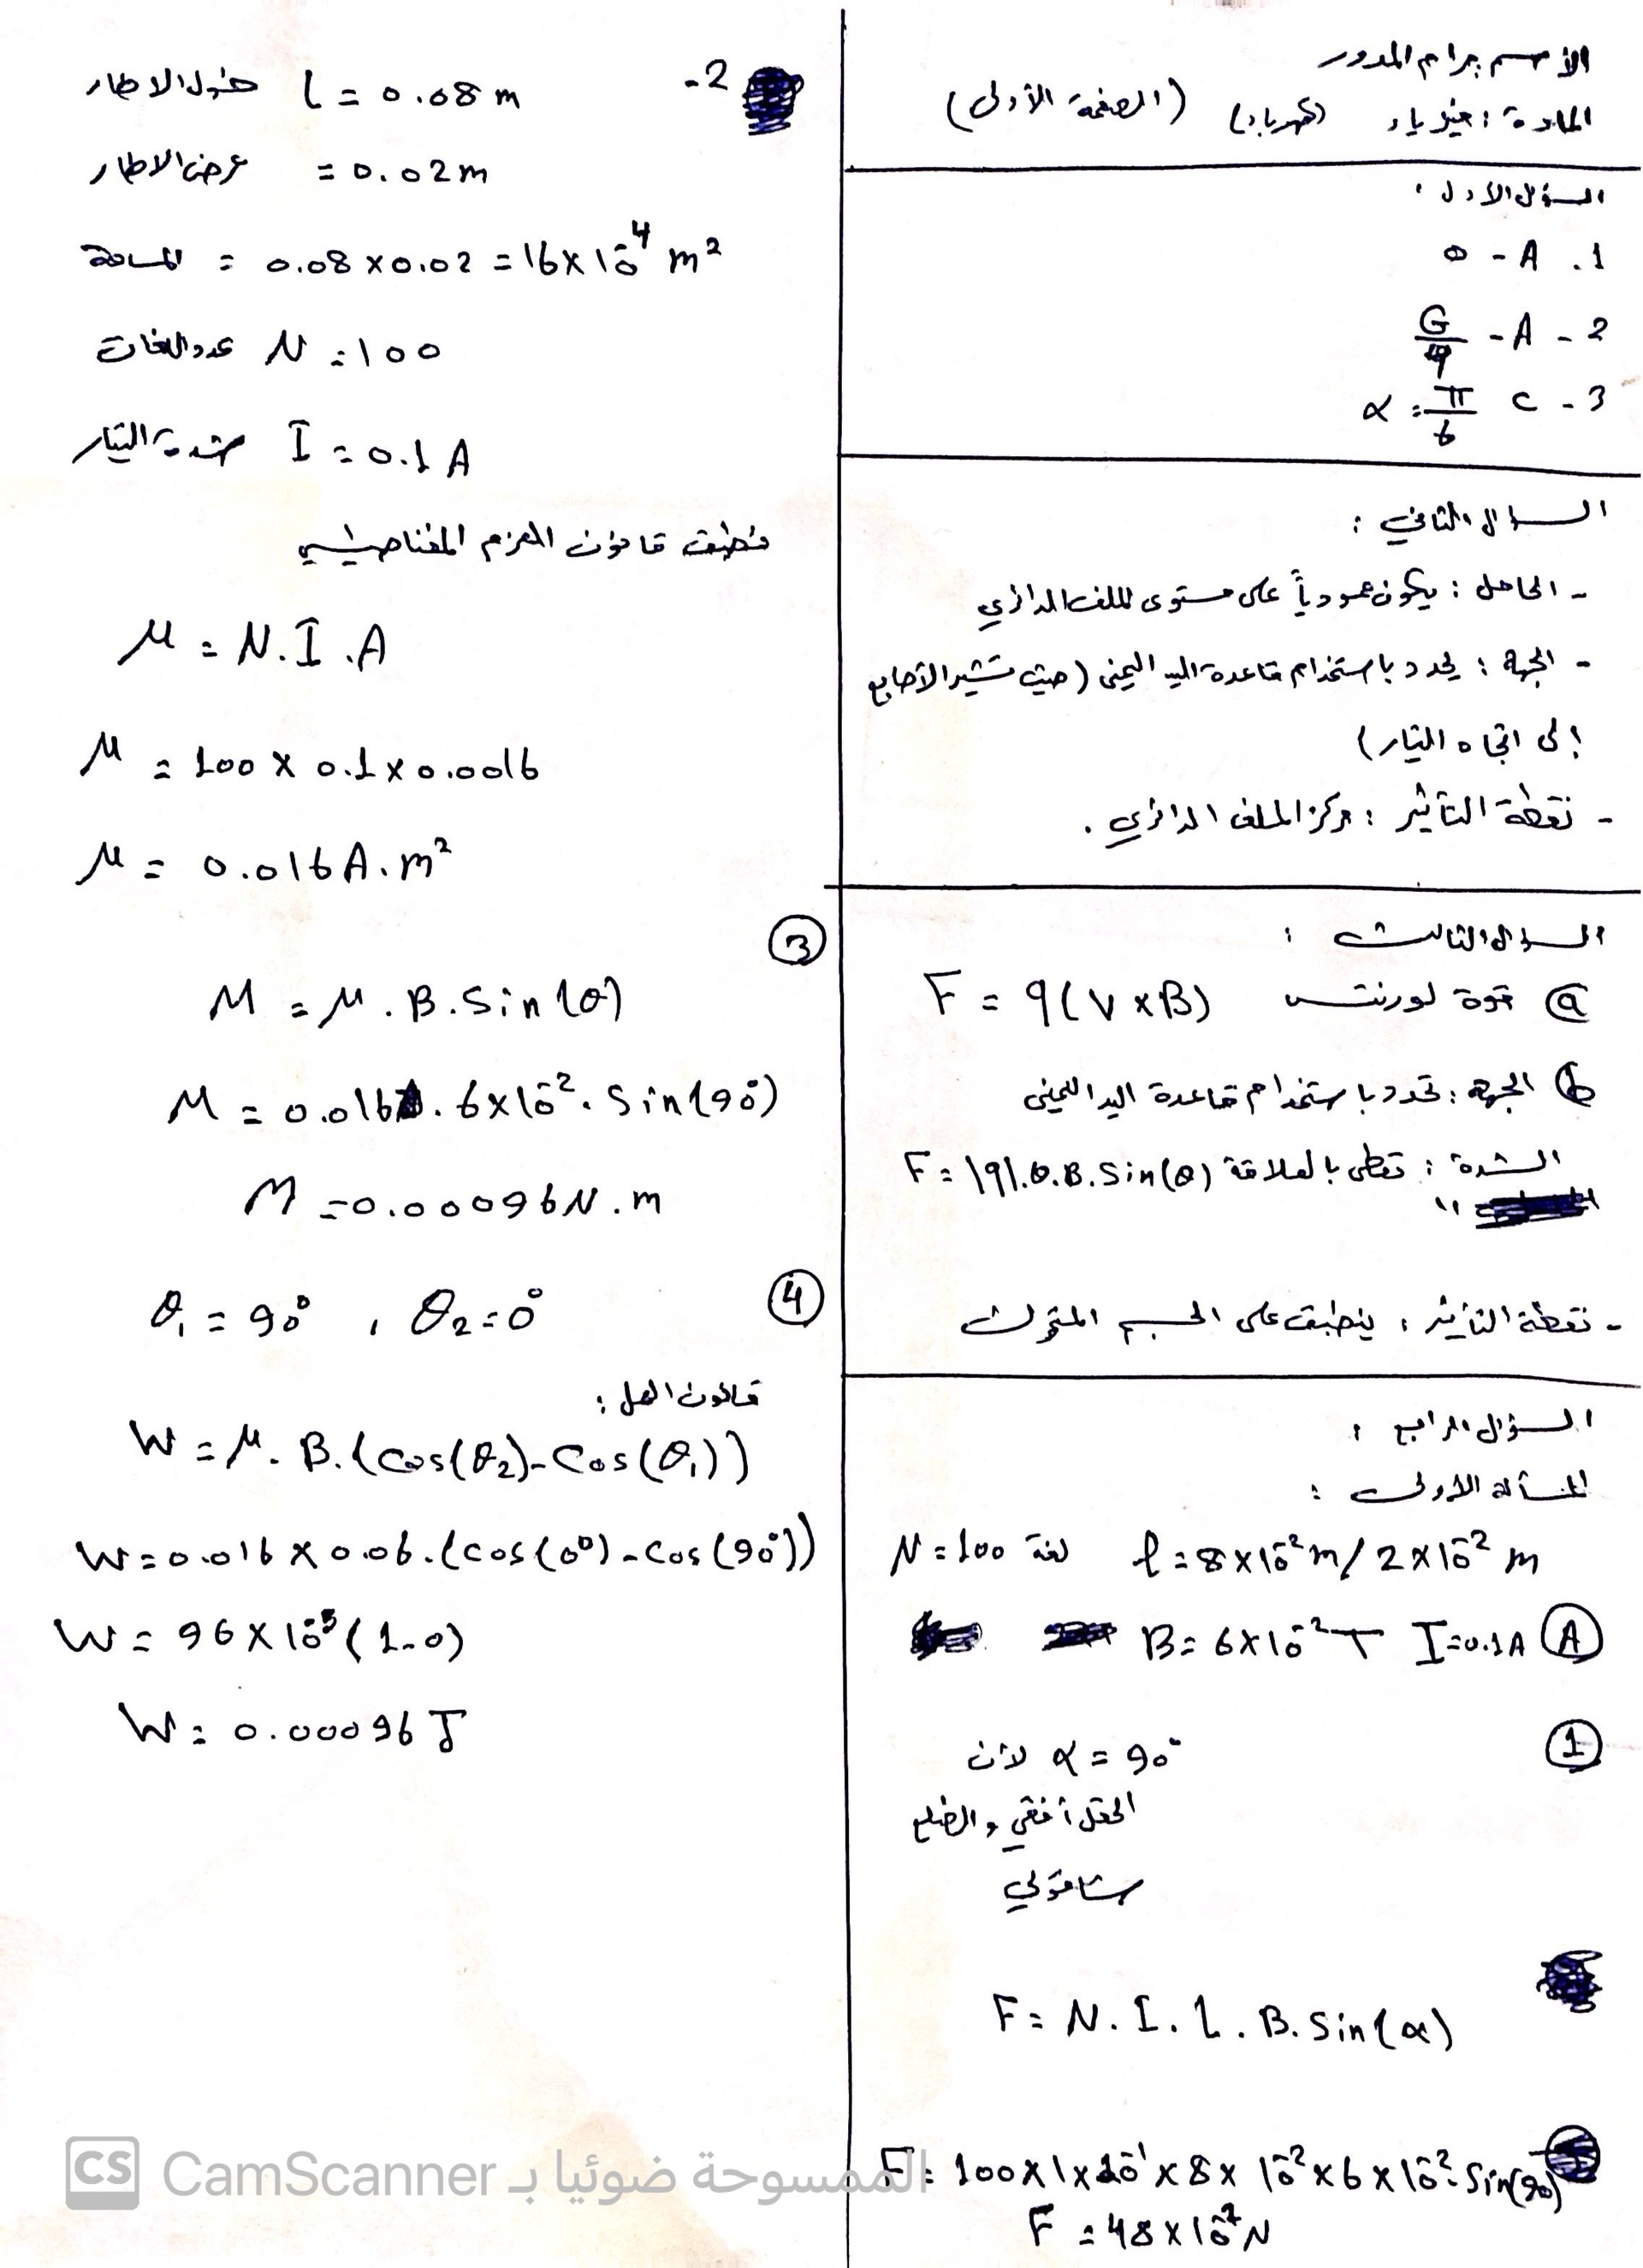 الأسم: برام المدور
المادة: فيزياء (كهرباء) (الصفحة الأولى)
السؤال الأول:
1. A - 0
2 - A - G/4
3 - C α = π/6
السؤال الثاني:
- الحامل: يكون عمودياً على مستوى الملف الدائري
- الجهة: يحدد باستخدام قاعدة اليد اليمنى (حيث تشير الأصابع
إلى اتجاه التيار)
- نقطة التأثير: مركز الملف الدائري.
السؤال الثالث:
a قوة لورنتس F = q(V×B)
b الجهة: تحدد باستخدام قاعدة اليد اليمنى
الشدة: تعطى بالعلاقة F = |q|.θ.B.Sin(θ)
- نقطة التأثير: ينطبق على الجسم المتحرك
السؤال الرابع:
المسألة الأولى:
N = 100 لفة l = 8×10⁻²m / 2×10⁻² m
A I = 0.1A B = 6×10⁻² T
1
α = 90° لأن
الحقل أفقي والضلع
شاقولي
F = N.I.L.B.Sin(α)
F = 100×1×10⁻¹×8×10⁻²×6×10⁻².Sin(90)
F = 48×10⁻² N
2- l = 0.08 m طول الاطار
= 0.02m عرض الاطار
المساحة = 0.08×0.02 = 16×10⁻⁴ m²
N = 100 عدد اللفات
I = 0.1 A شدة التيار
نطبق قانون العزم المغناطيسي
M = N.I.A
M = 100 × 0.1 × 0.0016
M = 0.016 A.m²
3
M = M.B.Sin(θ)
M = 0.016.6×10⁻².Sin(90°)
M = 0.00096N.m
4
θ₁ = 90°, θ₂ = 0°
قانون العمل:
W = M.B.(Cos(θ₂)-Cos(θ₁))
W = 0.016 × 0.06.(cos(0°)-Cos(90°))
W = 96×10⁻⁵(1-0)
W = 0.00096 J
CS CamScanner الممسوحة ضوئيا بـ